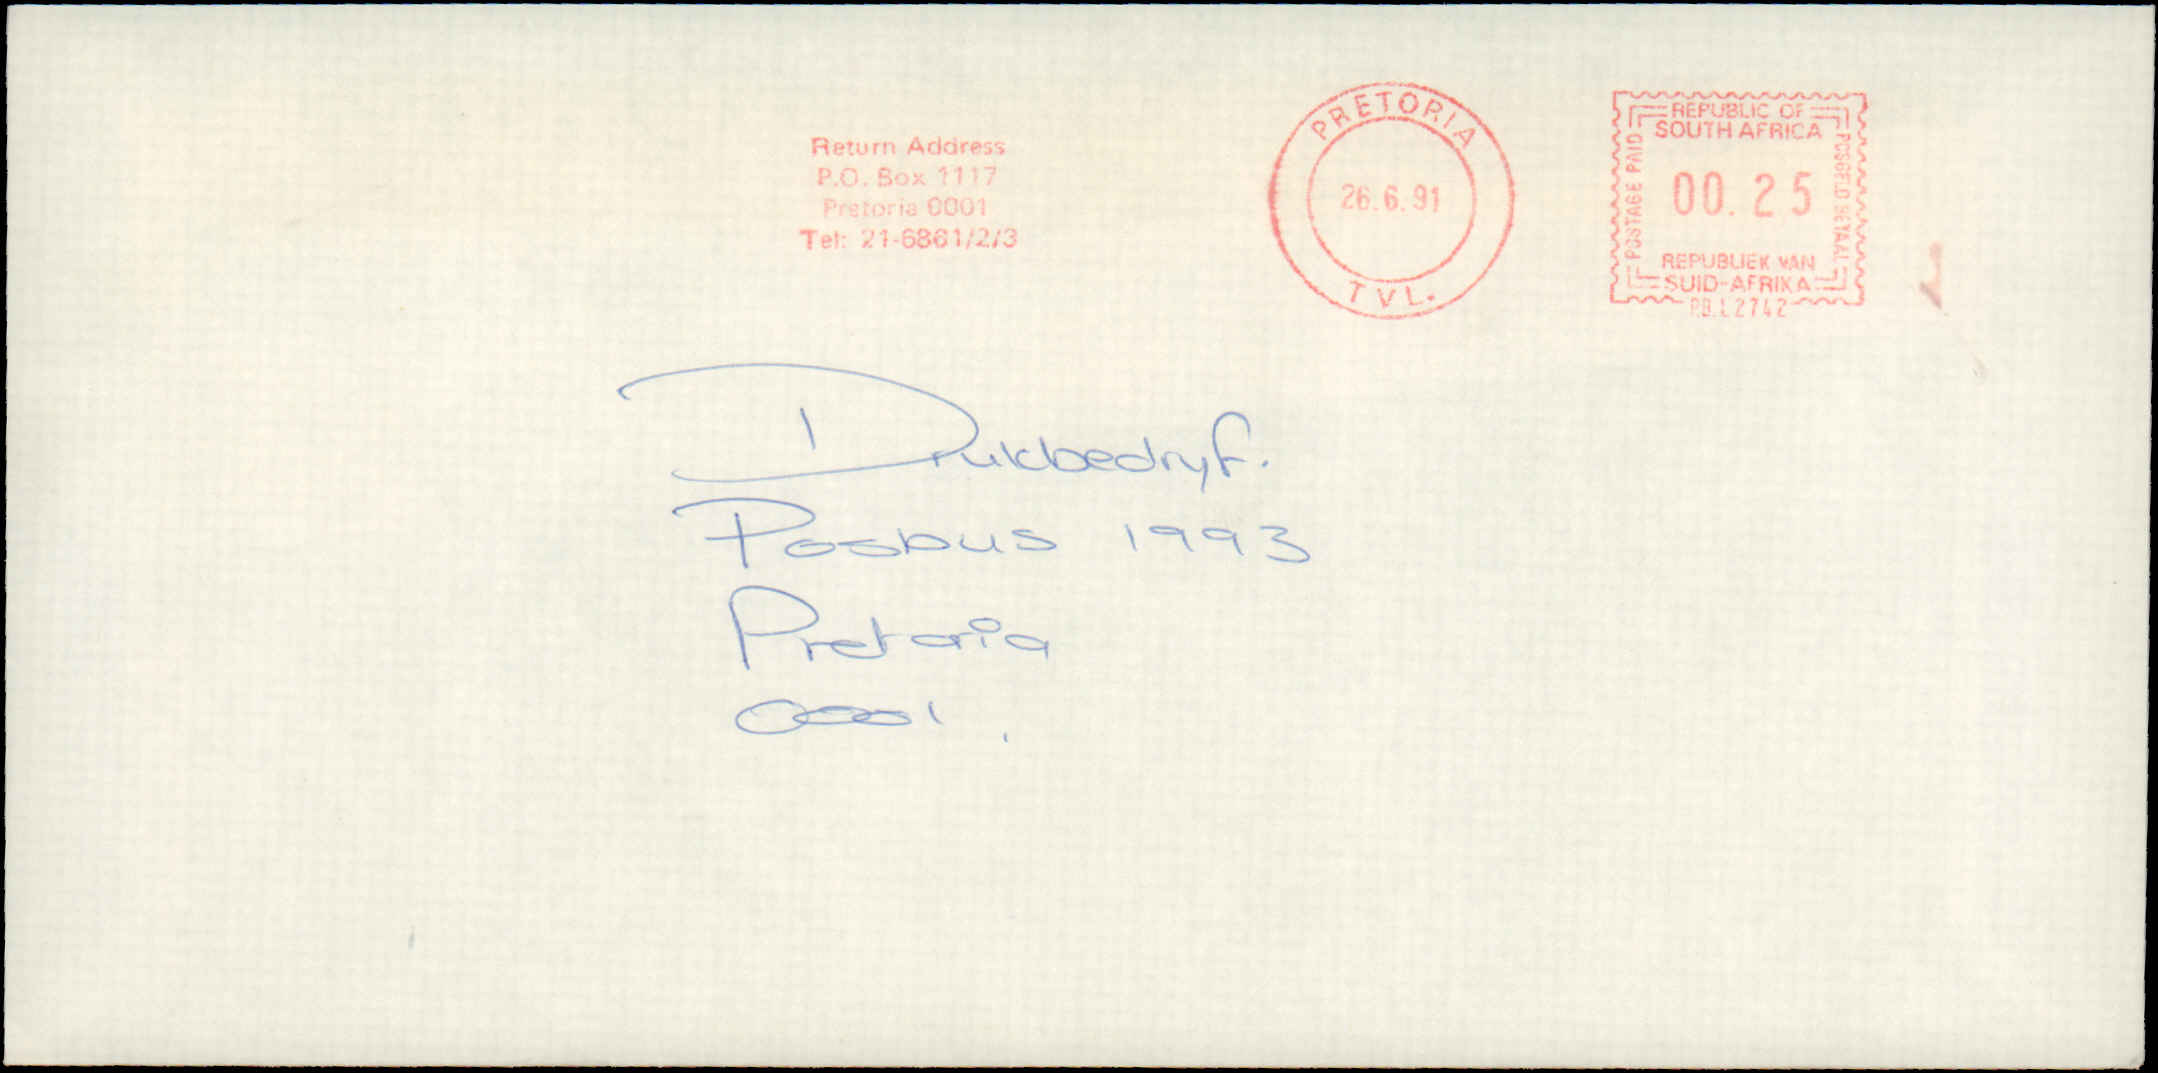 Return Address
P.O. Box 1117
Pretoria 0001
Tel: 21-6861/2/3
PRETORIA
26.6.91
TVL.
REPUBLIC OF
SOUTH AFRICA
POSTAGE PAID
00.25
POSGELD BETAAL
REPUBLIEK VAN
SUID-AFRIKA
P.B.L2742
Drukbedryf.
Posbus 1993
Pretoria
0001.